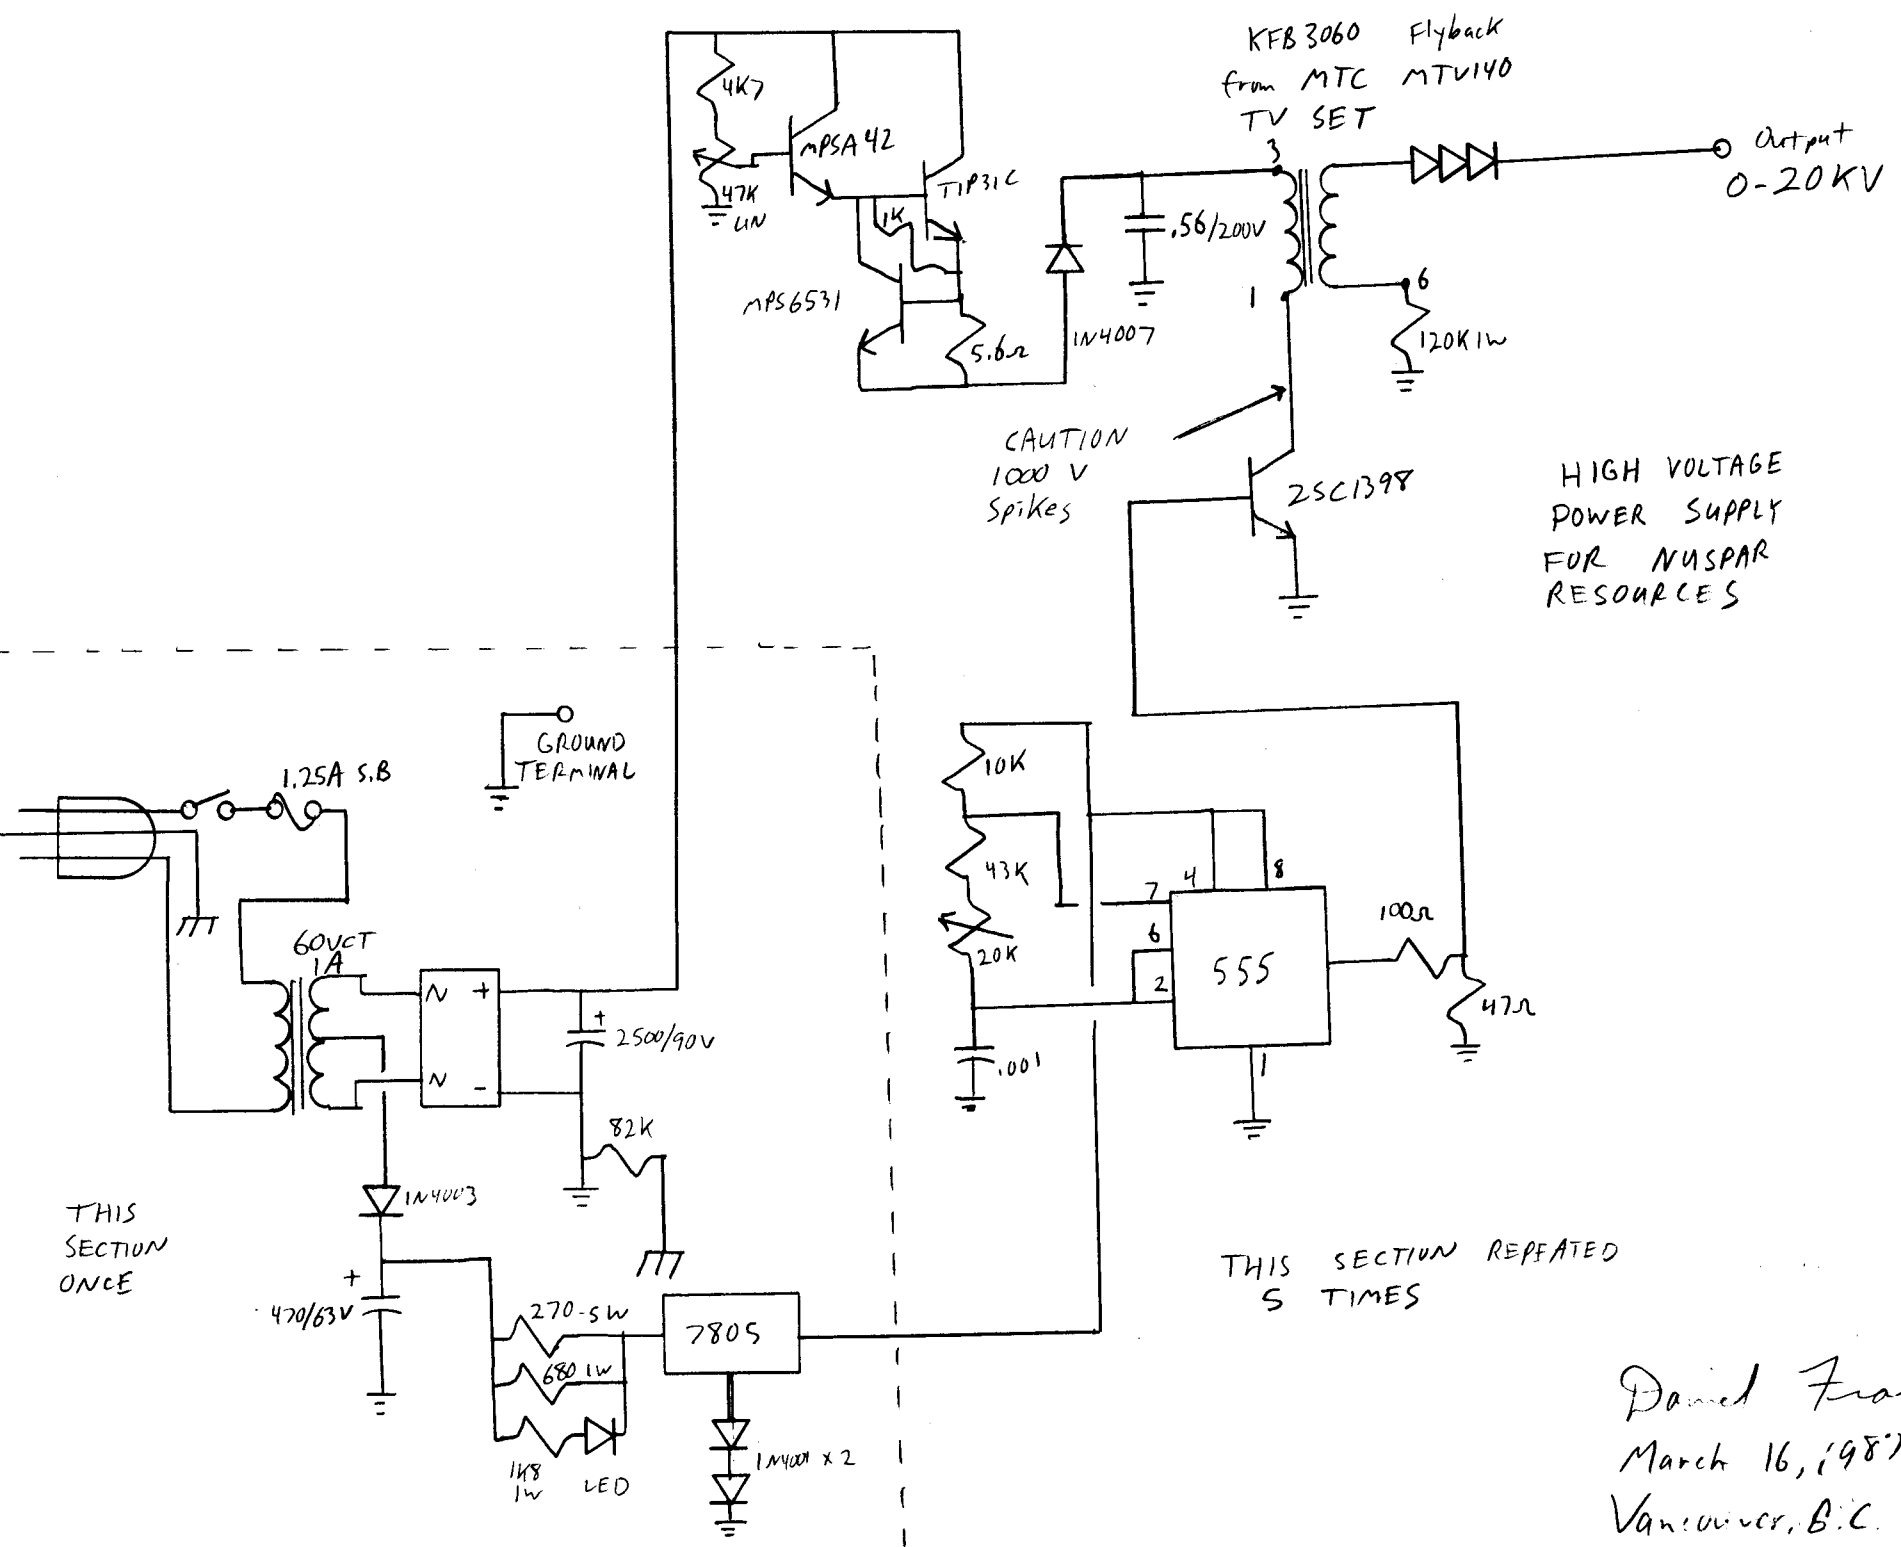 KFB3060 Flyback
from MTC MTV140
TV SET
4K7
MPSA42
47K
LIN
TIP31C
1K
MPS6531
5.6Ω
1N4007
.56/200V
3
1
6
120K1W
Output
0-20KV
CAUTION
1000 V
Spikes
2SC1398
HIGH VOLTAGE
POWER SUPPLY
FOR NUSPAR
RESOURCES
GROUND
TERMINAL
1.25A S.B
60VCT
1A
N +
N -
+
2500/90V
82K
1N4003
+
470/63V
THIS
SECTION
ONCE
270-5W
680 1W
1K8
1W
LED
7805
1N4001 x 2
10K
43K
20K
.001
7
6
2
4
8
555
1
100Ω
47Ω
THIS SECTION REPEATED
5 TIMES
Daniel
March 16, 198
Vancouver, B.C.